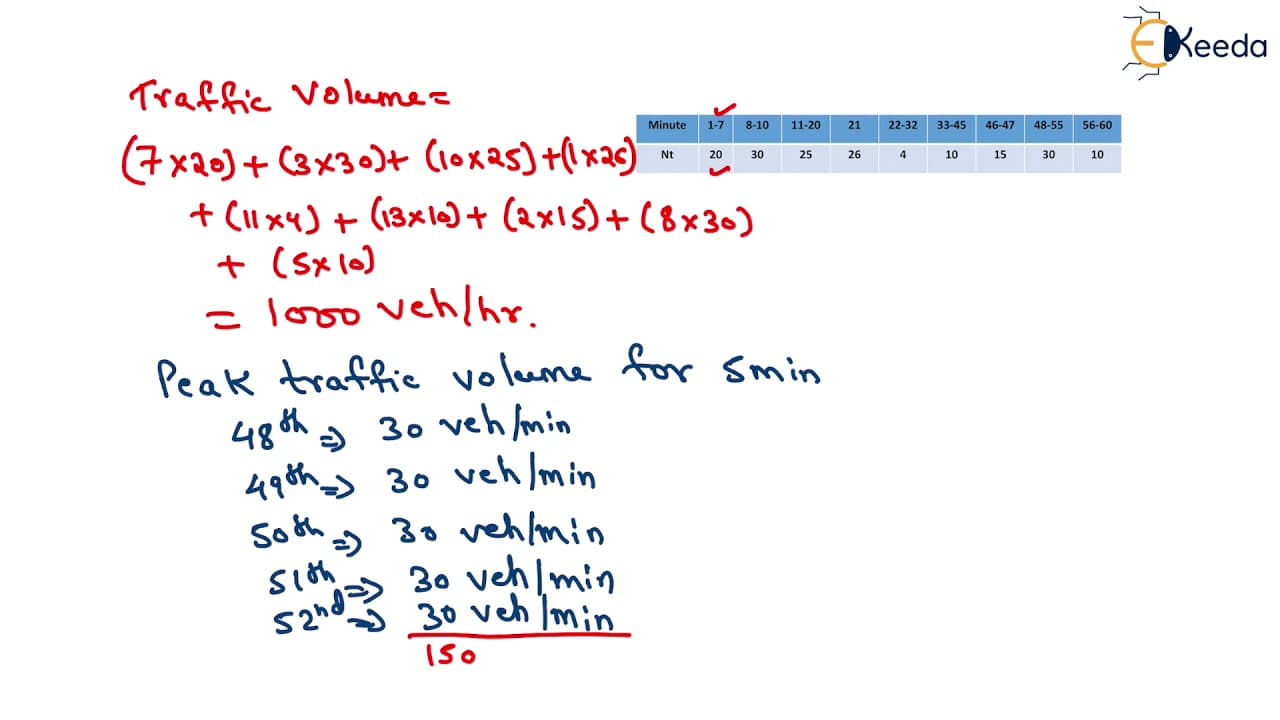 EKeeda
Traffic Volume=
Minute 1-7 8-10 11-20 21 22-32 33-45 46-47 48-55 56-60
Nt 20 30 25 26 4 10 15 30 10
(7×20)+(3×30)+(10×25)+(1×26)
+(11×4)+(13×10)+(2×15)+(8×30)
+ (5×10)
= 1000 veh/hr.
Peak traffic volume for 5min
48th => 30 veh/min
49th => 30 veh/min
50th => 30 veh/min
51th => 30 veh/min
52nd => 30 veh/min
150